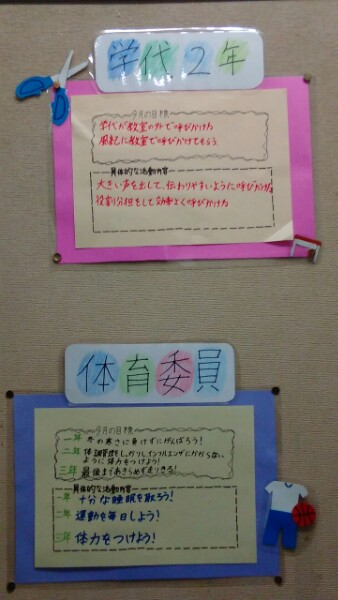 学代2年
今月の目標
学代が教室の外で呼びかけ
風紀に教室で呼びかけてもらう
具体的な活動内容
大きい声を出して、伝わりやすいように呼びかけ
役割分担をして効率よく呼びかけ
体育委員
今月の目標
一年 冬の寒さに負けずにがんばろう!
二年 体調管理をしっかりしインフルエンザにかからない
ように体力をつけよう!
三年 最後まであきらめず走りきる!
具体的な活動内容
一年 十分な睡眠を取ろう!
二年 運動を毎日しよう!
三年 体力をつけよう!